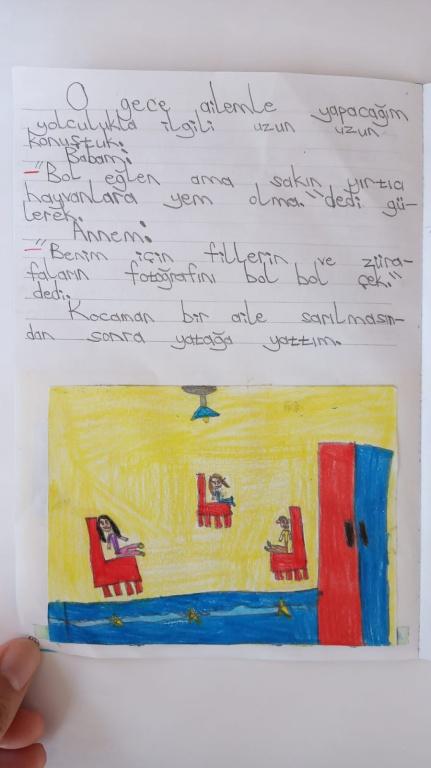 O gece ailemle yapacağım
yolculukla ilgili uzun uzun
konuştuk.
Babam:
–"Bol eğlen ama sakın yırtıcı
hayvanlara yem olma." dedi gü-
lerek.
Annem:
–"Benim için fillerin ve züra-
faların fotoğrafını bol bol çek."
dedi.
Kocaman bir aile sarılmasın-
dan sonra yatağa yattım.